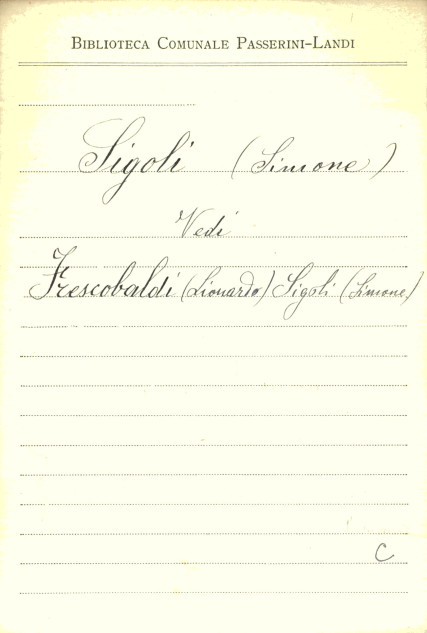 BIBLIOTECA COMUNALE PASSERINI-LANDI
Sigoli (Simone)
Vedi
Frescobaldi (Lionardo) Sigoli (Simone)
C